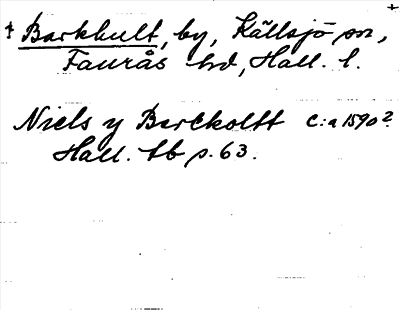 +
† Barkhult, by, Källsjö sn,
Faurås hd, Hall. l.
Niels y Barckoltt c:a 1590?
Hall. tb p. 63.